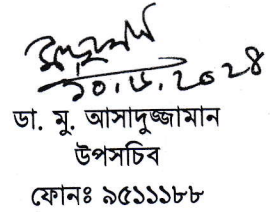 ২০.৬.২০২৪
ডা. মু. আসাদুজ্জামান
উপসচিব
ফোনঃ ৯৫১১১৮৮